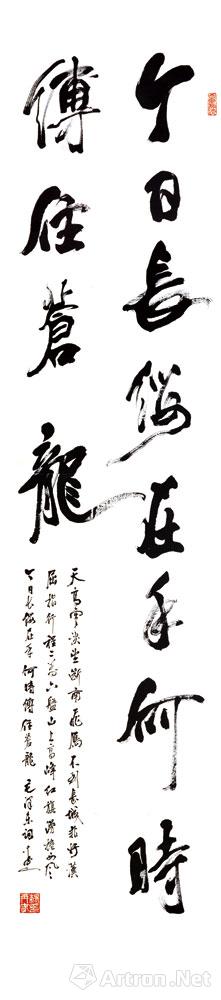 今日長纓在手何時
縛住蒼龍
天高雲淡望斷南飛雁不到長城非好漢
屈指行程二萬六盤山上高峰紅旗漫捲西風
今日長纓在手何時縛住蒼龍 毛澤東詞
Artron.Net